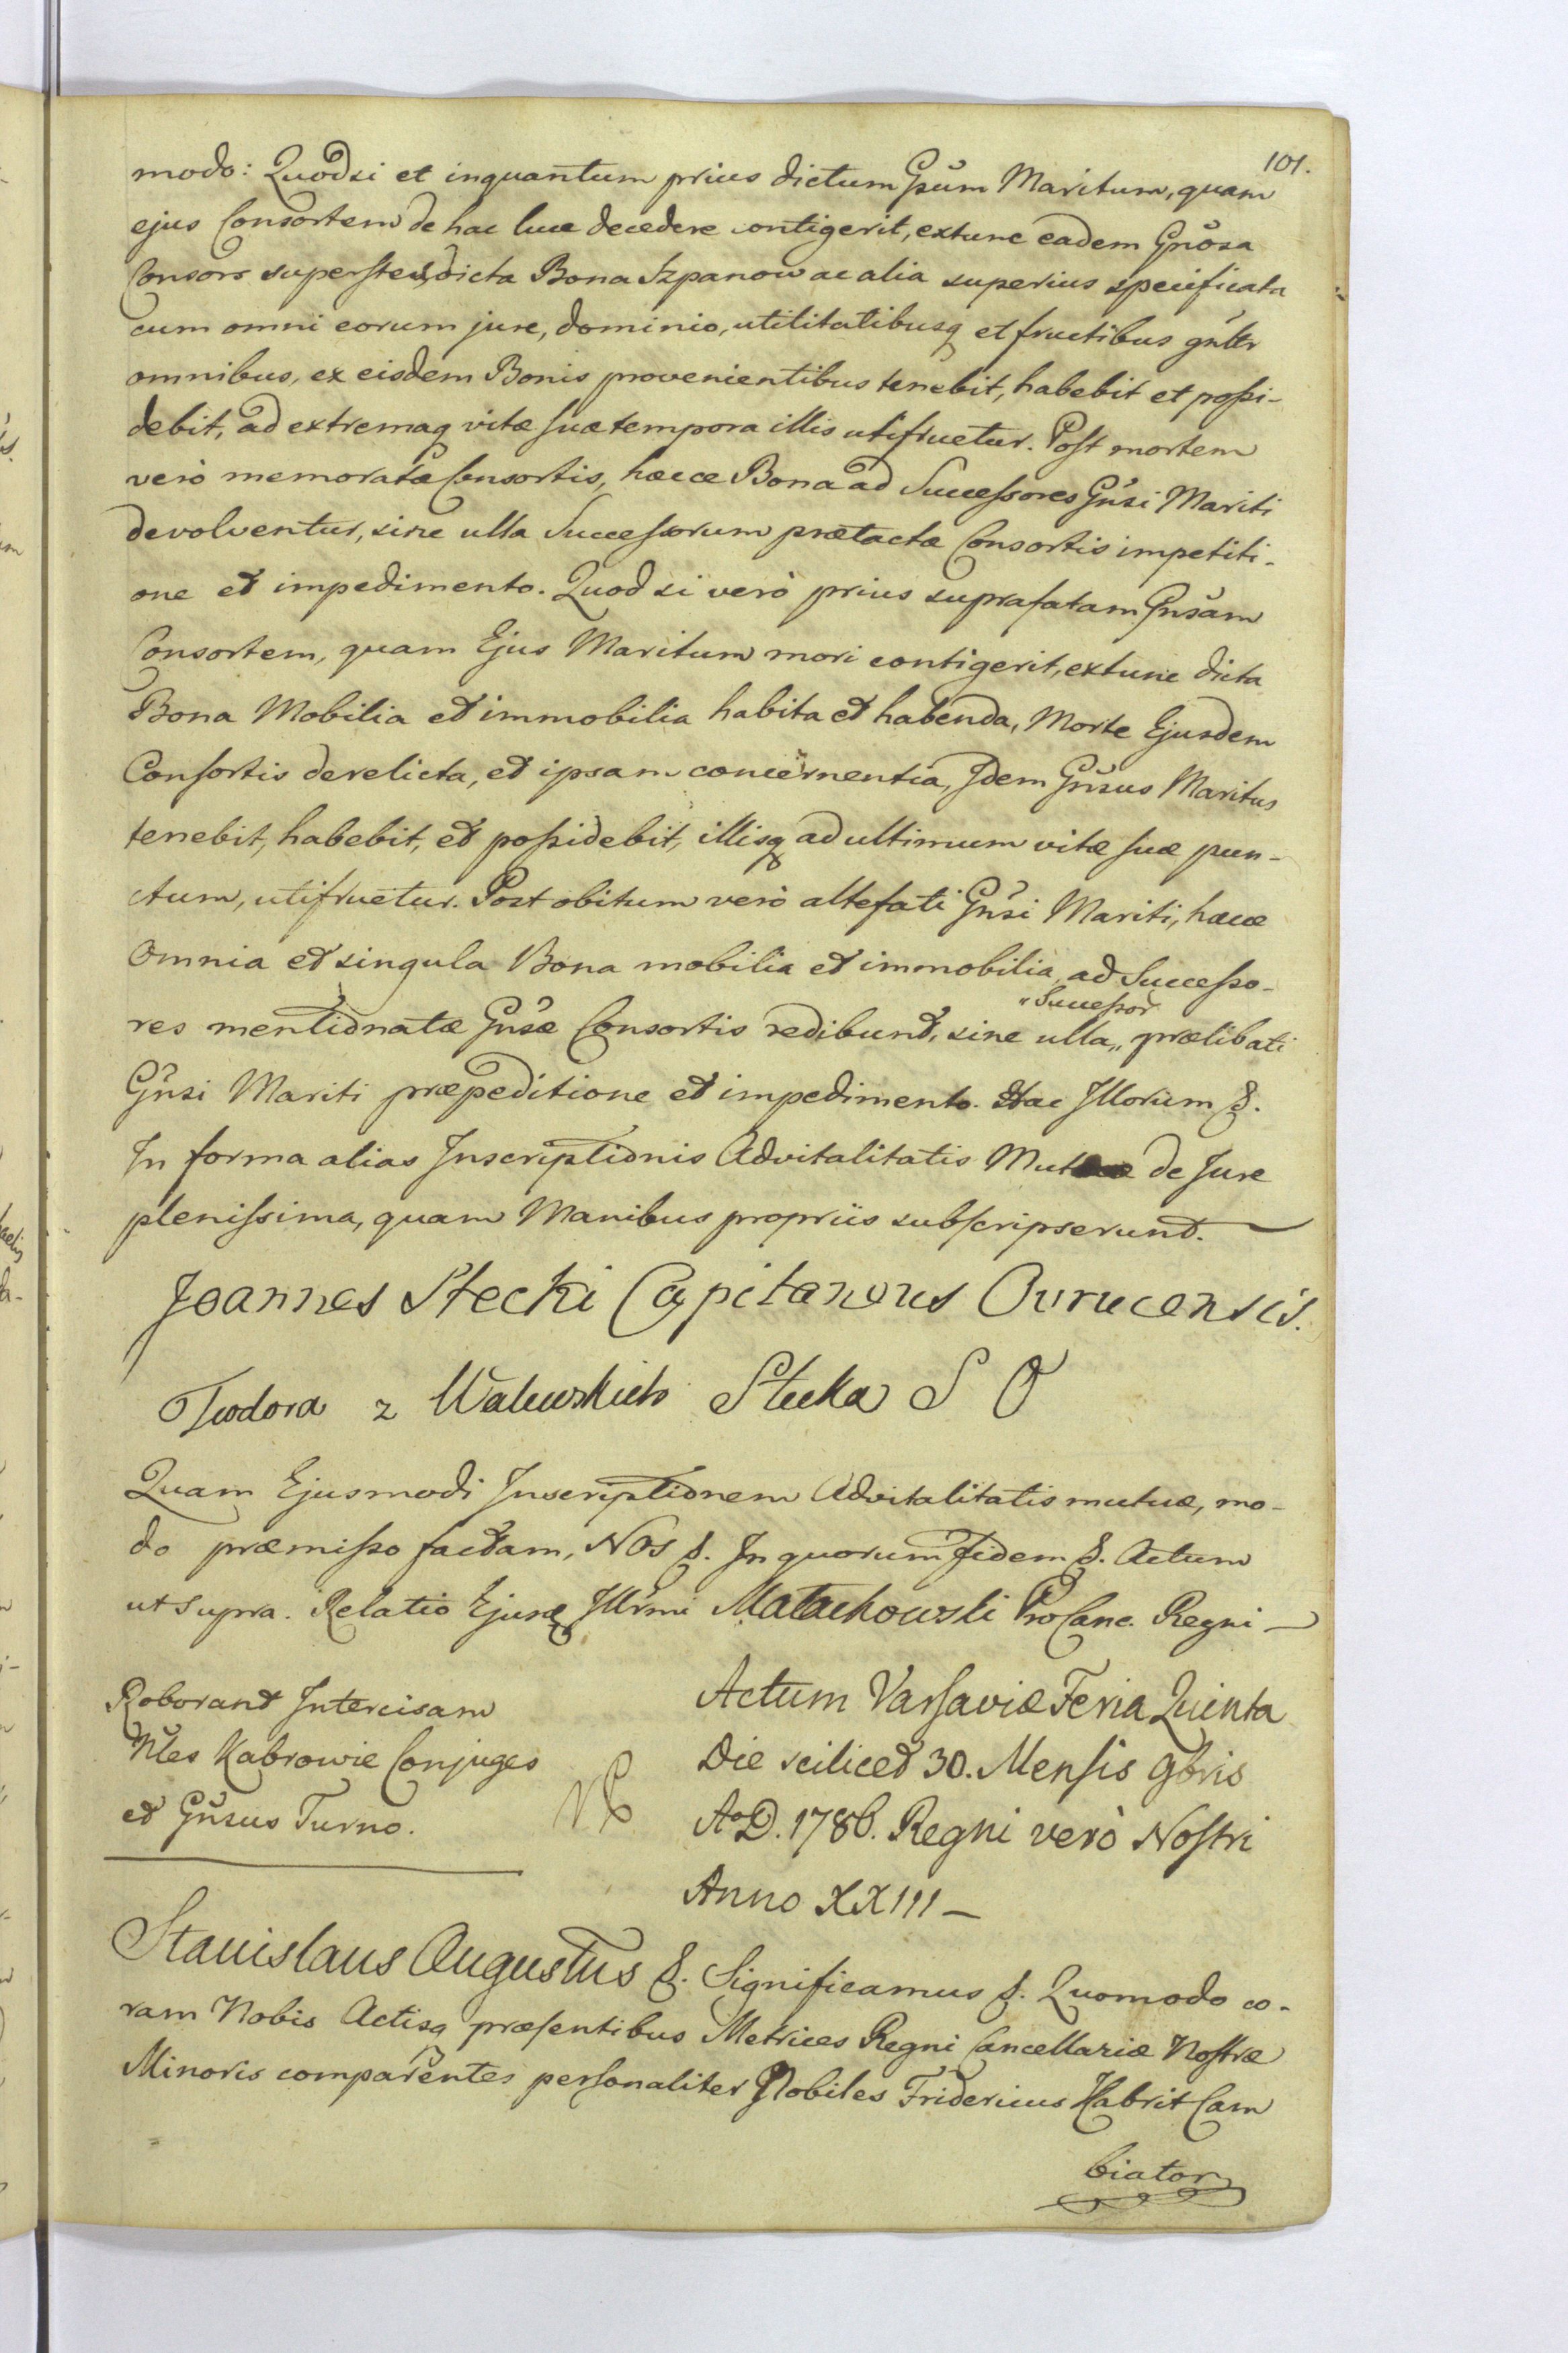 101.
modo: Quodsi et inquantum prius dictum Gsum Maritum, quam
ejus Consortem de hac luce decedere contigerit, extunc eadem Gnosa
Consors superstes, dicta Bona Szpanow ac alia superius specificata
cum omni eorum jure, dominio, utilitatibusq et fructibus gnltr
omnibus, ex eisdem Bonis provenientibus tenebit, habebit et possi-
debit, ad extremaq vitæ suæ tempora illis utifruetur. Post mortem
verò memoratæ Consortis, hæcce Bona ad Successores Gnsi Mariti
devolventur, sine ulla Successorum prætactæ Consortis impetiti-
one et impedimento. Quod si verò prius suprafatam Gnsam
Consortem, quam Ejus Maritum mori contigerit, extunc dicta
Bona Mobilia et immobilia habita et habenda, Morte Ejusdem
Consortis derelicta, et ipsam concernentia, Idem Gnsus Maritus
tenebit, habebit, et possidebit, illisq ad ultimum vitæ suæ pun-
ctum, utifruetur. Post obitum verò altefati Gnsi Mariti, hæcce
Omnia et singula Bona mobilia et immobilia ad Successo-
"Successor
res mentionatæ Gnsæ Consortis redibunt, sine ulla „ prælibati
Gnsi Mariti præpeditione et impedimento. Hac Illorum &.
In forma alias Inscriptionis Advitalitatis Mutuæ de Jure
plenissima, quam Manibus propriis subscripserunt.
Joannes Stecki Capitaneus Owrucensis.
Teodora z Walewskich Stecka S O
Quam Ejusmodi Inscriptionem Advitalitatis mutuæ, mo-
do præmisso factam, Nos &. In quorum fidem &. Actum
ut supra. Relatio Ejusq Illrmi Małachowski ProCanc. Regni
Roborant Intercisam
Nles Kabrowie Conjuges
et Gnsus Turno.
Actum Varsaviæ Feria Quinta
Die scilicet 30. Mensis 9bris
AoD. 1786. Regni verò Nostri
Anno XXIII
Stanislaus Augustus &. Significamus &. Quomodo co-
ram Nobis Actisq præsentibus Metrices Regni Cancellariæ Nostræ
Minoris comparentes personaliter Nobiles Fridericus Kabrit Cam
biator